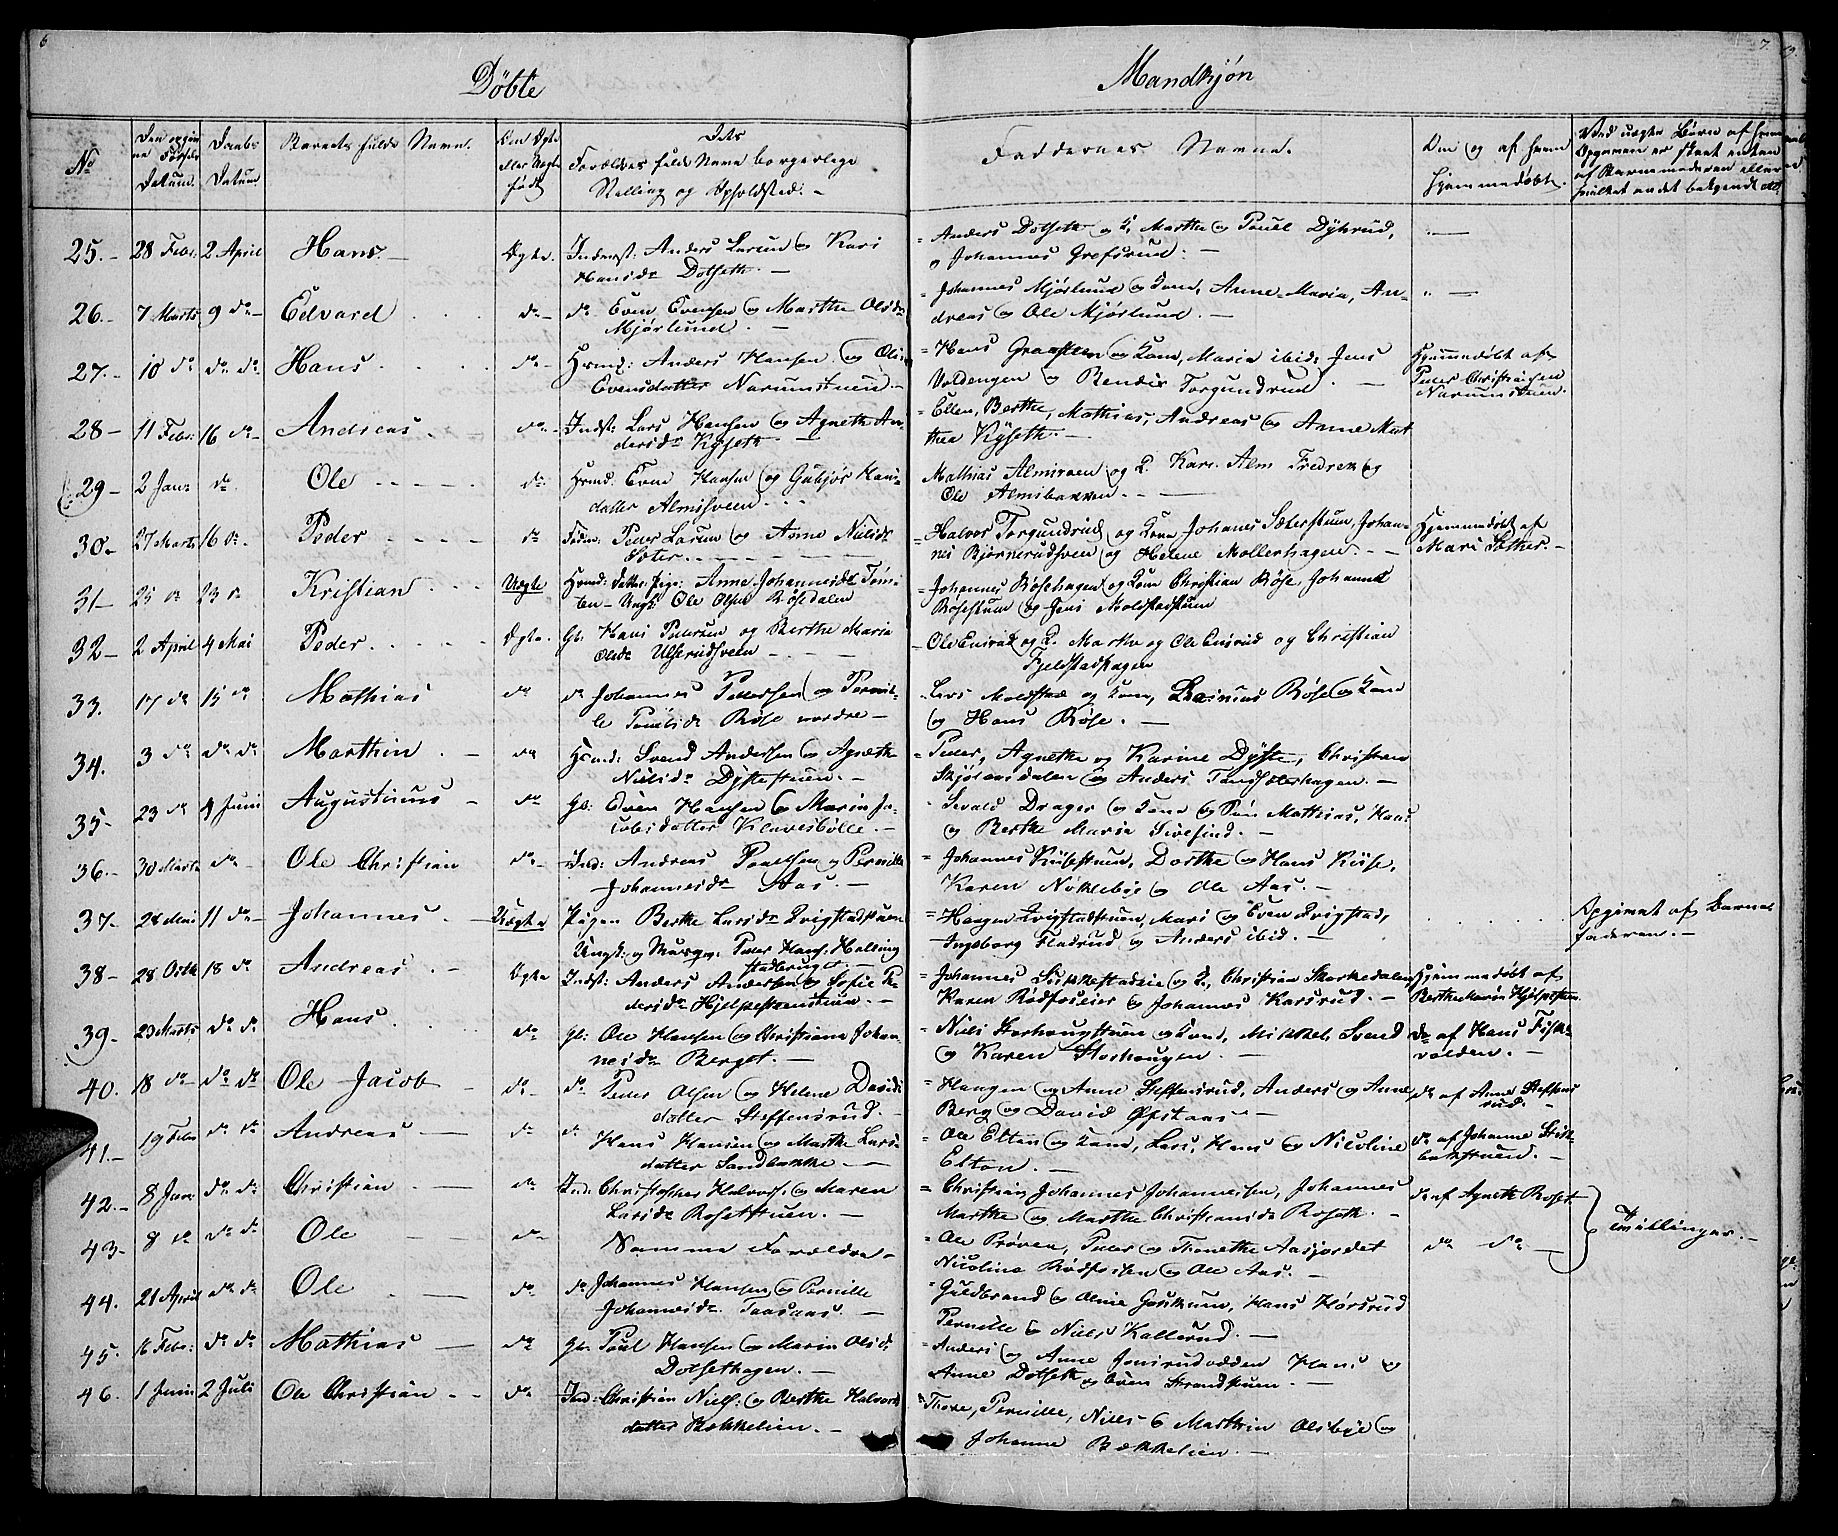 6
7.
Döbte
Mandkjøn
No
Den opgivne Fødsels Datum.
Daabs Datum
Barnets fulde Navn.
Om Ægte eller Uægte født
Dets Forældres fulde Navn borgerlige Stilling og Opholdsted. -
Faddernes Navne.
Om og af hvem hjemmedöbt.
25.- 28 Febr. 2 April Hans. - Ægte. Inderst: Anders Larsen og Kari
Hansdr Dotseth. -
= Anders Dotseth og K. Marthe og Pouel Dyhrud,
og Johannes Grefsrud. -
26.- 7 Marts 9 do- Edvard do- do Even Evensen og Marthe Olsdr
Mjörlund. -
= Johannes Mjörlund og Kone, Anne-Maria, An-
dreas og Ole Mjörlund. -
27.- 10 do do do Hans do- Hrmd: Anders Hansen og Oline
Evensdatter Narumstuen. -
= Hans Graasteen og Kone, Maria ibid: Jens
Voldengen og Rendei Torgundrud. -
Hjemmedöbt af
Peder Christiansen
Narumstuen.
28- 11 Febr: 16 do- Andreas do- Indst: Lars Hansen og Agnethe An-
dersdr Kyseth -
= Ellen, Berthe, Mathias, Andreas og Anne Mar
thea Kyseth. -
29- 2 Janr do Ole do. Hrmd: Even Hansen og Gubjör Han-
datter Almisveen.
Mathias Almisveen og K. Kari Alm Fredrek og
Ole Almsbakken. -
30- 27 Marts 16 do Peder do Peder Larsen og Anne Nielsdr
Sæter.
= Halvor Torgundrud og Kone Johanes Sæterstuen, Johan-
nes Bjørnerudsveen og Helene Mollerhagen. -
Hjemmedöbt af
Mari Sæther. -
31- 25 do 23 do Kristian Uægte Hrmd: Datter Pige: Anne Johannesdr Tom-
ten - Ungk: Ole Olsen Rösedalen
= Johannes Rösehagen og Kone Christian Röse, Johannes
Rösestuen og Jens Moldstadstuen
32- 2 April 4 Mai Peder Ægte. Gb: Hans Pedersen og Berthe Maria
Olsdr Ulsrudsveen
- Ole Ensrud og K. Marthe og Ole Ensrud og Christian
Fjeldstadhagen
33. 17 do 15 do Mathias do do Johannes Pedersen og Pernil-
le Poulsdr Röse nordre -
= Lars Moldstad og Kone, Rasmus Röse og Kone
og Hans Röse. -
34. 3 do do do Marthin do Hrmd: Svend Andersen og Agnethe
Nielsdr Dystestuen. -
= Peder, Agnethe og Karine Dyste, Christian
Skjolaasdalen og Anders Sandsæterhagen. -
35- 23 do 4 Juni Augustinus - do Gb: Even Hansen og Marin Ja-
cobsdatter Klevesbölle. -
- Sevald Drager og Kone og Søn Mathias, Hans
og Berthe Maria Sivesind. -
36.- 30 Marts do- Ole Christian do- Ind: Andreas Poulsen og Pernille
Johannesdr Aas. -
= Johannes Kiilestuen, Dorthe og Hans Kiise,
Karen Nöklebye og Ole Aas. -
37.- 24 Mai 11 do- Johannes. Uægte Pigen Berthe Larsdr Qvigstadstuen
Ungk: og Murer Peder Hans. Halling
stadbruget. -
= Haagen Qvigstadstuen, Mari og Even Qvigstad,
Ingeborg Fladrud og Anders ibid. -
Opgivet af Barne
faderen. -
38- 28 Octb 18 do Andreas. - Ægte Indst: Anders Andersen og Sofie Pe
dersdr Hjelpestenstuen. -
= Johannes Sukkestadeie og K., Christian Starkedalen,
Karen Rödfoseier og Johannes Karsrud. -
Hjemmedöbt af
Berthe Marin Hjelpesten
39.- 23 Marts do do Hans. do Gb: Ole Hansen og Christiane Johan-
nesdr Berget. -
= Niels Storhaugstuen og Kone, Mikkel, Svend
og Karen Storhaugen. -
do af Hans Fisk-
volden. -
40. 18 do- do do Ole Jacob - do- do Peder Olsen og Helene Davids
datter Steffensrud. -
= Haagen og Anne Steffensrud, Anders og Anne
Berg og David Øfstaas -
do af Anne Steffens
rud. -
41.- 19 Febr do do Andreas - do do Hans Hansen og Marthe Lars-
datter Sandbakke. -
= Ole Elton og Kone, Lars, Hans og Nicoline
Elton. -
do af Johanne
42.- 8 Janr do do Christian - do Ind: Christopher Halvors. og Maren
Larsdr Rosetstuen. -
= Christian Johannes Johannessen, Johannes
Marthe og Marthe Christiansdr Roseth. -
do af Agnethe Roset
43- 8 do do do Ole do- Samme Forældre -
= Ole Pröven, Peder og Thonethe Aasjordet
Nicoline Rödfosten og Ole Aas. -
do do -
Tvillinger. -
44. 21 April do do Ole do. do Johannes Hansen og Pernille
Johannesdr Taasaas. -
= Guldbrand og Oline Hans Hörsrud
Pernille og Niels Kallerud. -
45. 16 Febr: do do Mathias - do Gb: Poul Hansen og Marin Olsdr
Dotsethagen. -
= Anders og Anne Jonsrudodden Hans og
Anne Dotseth og Even Strandstuen. -
46. 1 Juni 2 Juli Ole Christian - - do- Ind: Christian Niels: og Berthe Halvors
datter Bækkelien. -
= Thore, Pernille, Niels & Marthin Olsbye og
Johanne Bækkelien. -